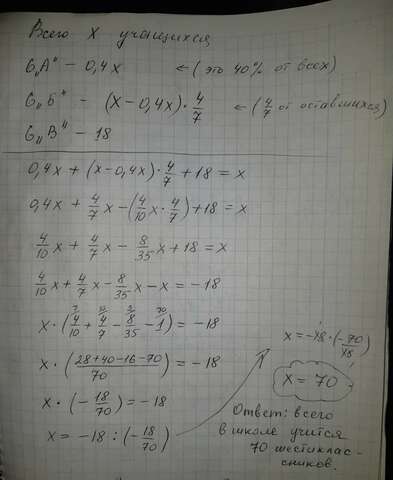 Всего X учащихся
6„А" – 0,4x ← (это 40% от всех)
6„Б" – (x–0,4x)·4/7 ← (4/7 от оставшихся)
6„В" – 18
0,4x + (x–0,4x)·4/7 + 18 = x
0,4x + 4/7x – (4/10x·4/7) + 18 = x
4/10x + 4/7x – 8/35x + 18 = x
4/10x + 4/7x – 8/35x – x = –18
x·(4/10 + 4/7 – 8/35 – 1) = –18
x·((28+40–16–70)/70) = –18
x·(–18/70) = –18
x = –18 : (–18/70)
x = –18·(–70/18)
x = 70
Ответ: всего
в школе учится
70 шестиклас-
сников.